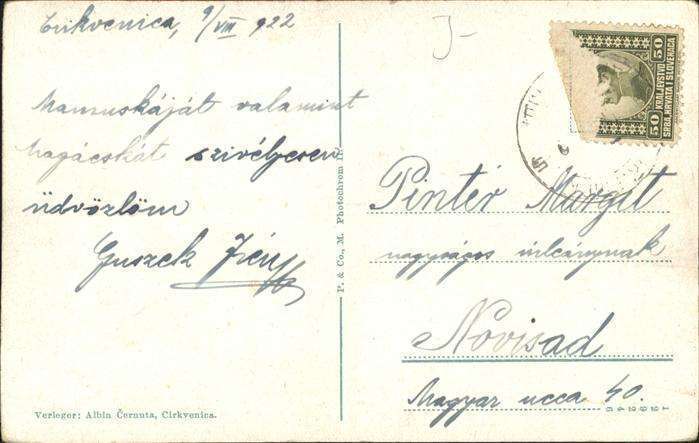 Crikvenica, 9/VIII 1922
Mamuskáját valamint
magácskát szivélyesen
üdvözlöm
Guszek
Verleger: Albin Černuta, Cirkvenica.
P. & Co., M. Photochrom
50 KRALJEVSTVO 50
SRBA, HRVATA I SLOVENACA
Pintér Margit
nagyságos úrleánynak
Novisad
Magyar ucca 40.